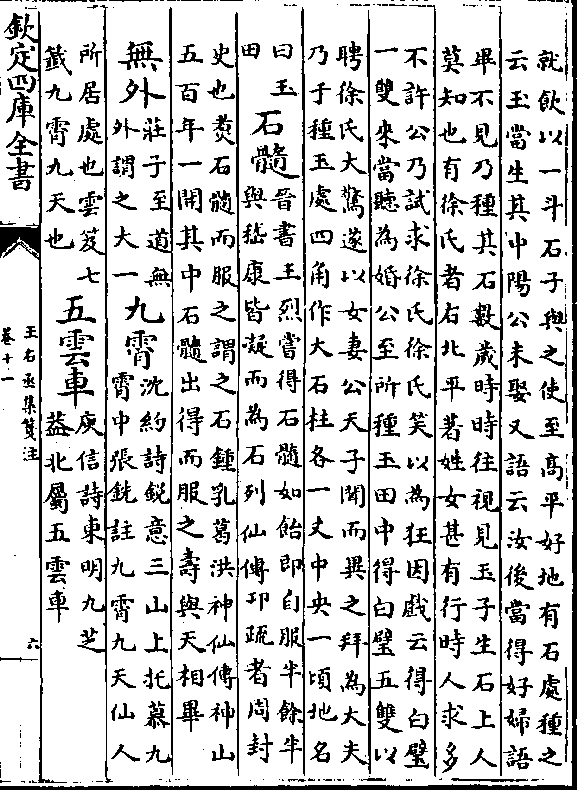 就飲以一斗石子與之使至高平好地有石處種之
云玉當生其中陽公未娶又語云汝後當得好婦語
畢不見乃種其石數歲時時往視見玉子生石上人
莫知也有徐氏者右北平著姓女甚有行時人求多
不許公乃試求徐氏徐氏笑以為狂因戲云得白璧
一雙來當聽為婚公至所種玉田中得白璧五雙以
聘徐氏大驚遂以女妻公天子聞而異之拜為大夫
乃于種玉處四角作大石柱各一丈中央一頃地名
曰玉
田
石髓
晉書王烈嘗得石髓如飴即自服半餘半
與嵇康皆凝而為石列仙傳卭疏者周封
史也煑石髓而服之謂之石鍾乳葛洪神仙傳神山
五百年一開其中石髓出得而服之壽與天相畢
無外
莊子至道無
外謂之大一
九霄
沈約詩銳意三山上托慕九
霄中張銑註九霄九天仙人
所居處也雲笈七
籤九霄九天也
五雲車
庾信詩東明九芝
葢北屬五雲車
欽定四庫全書
王右丞集箋注
卷十一
六